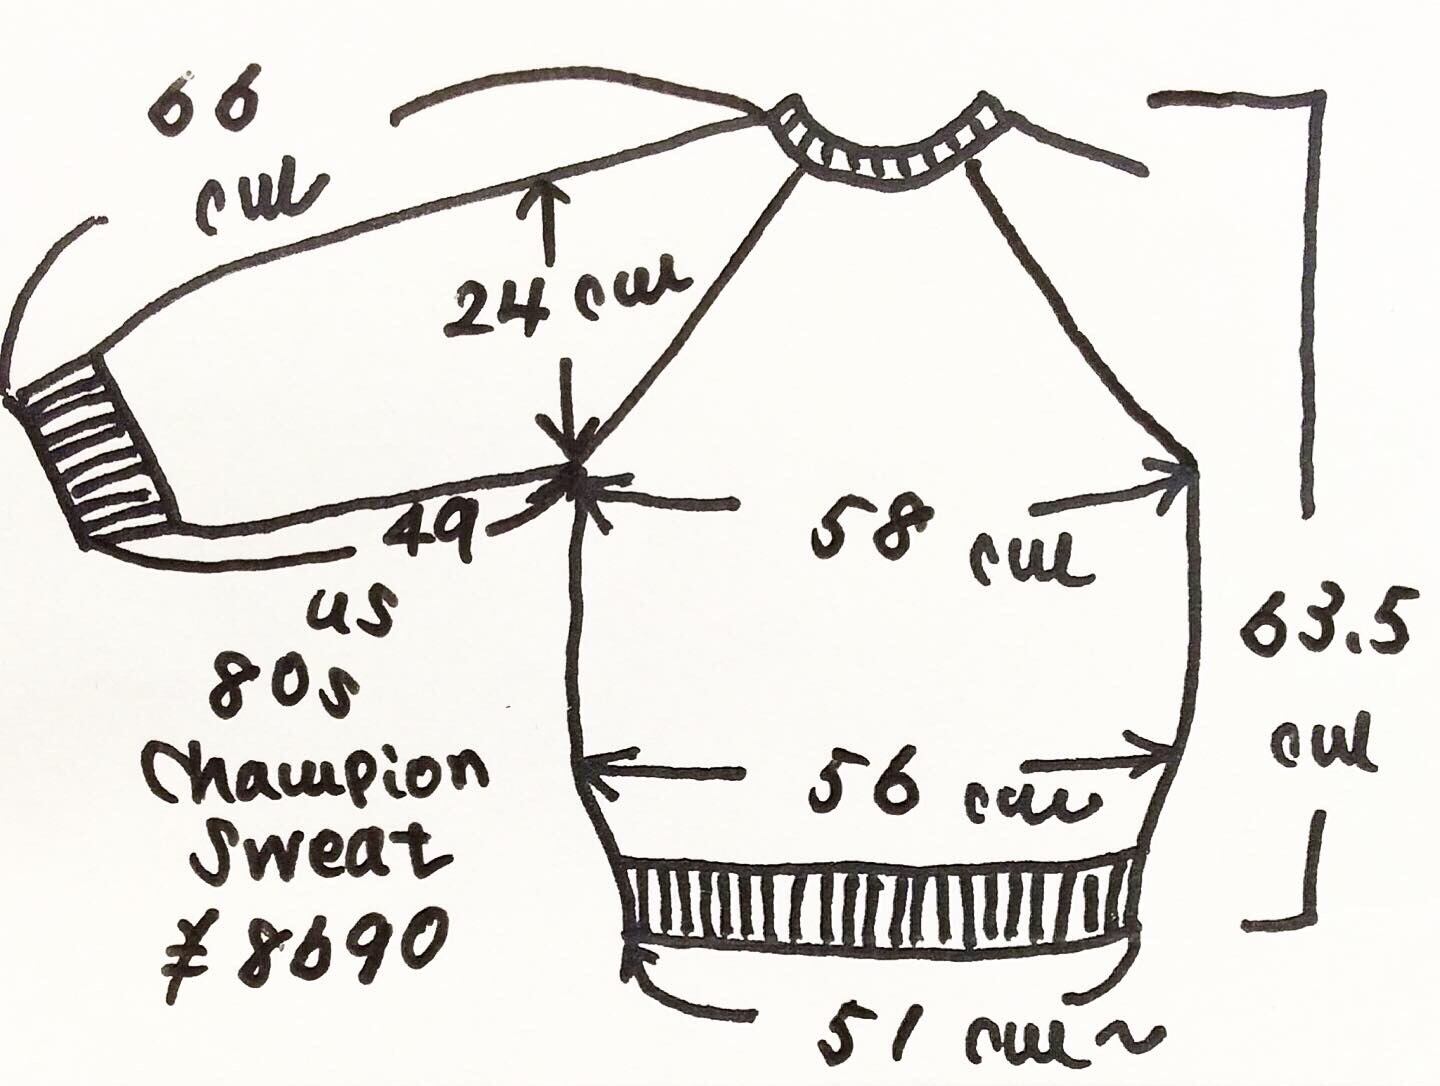 66
cm
24 cm
49
58 cm
63.5
cm
56 cm
51 cm~
us
80s
Champion
Sweat
¥8690